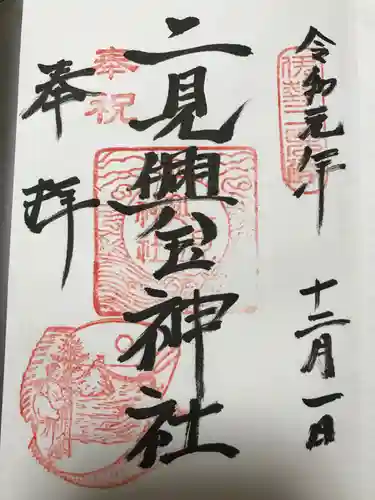 令和元年
十二月一日
二見興玉神社
奉拝
奉祝